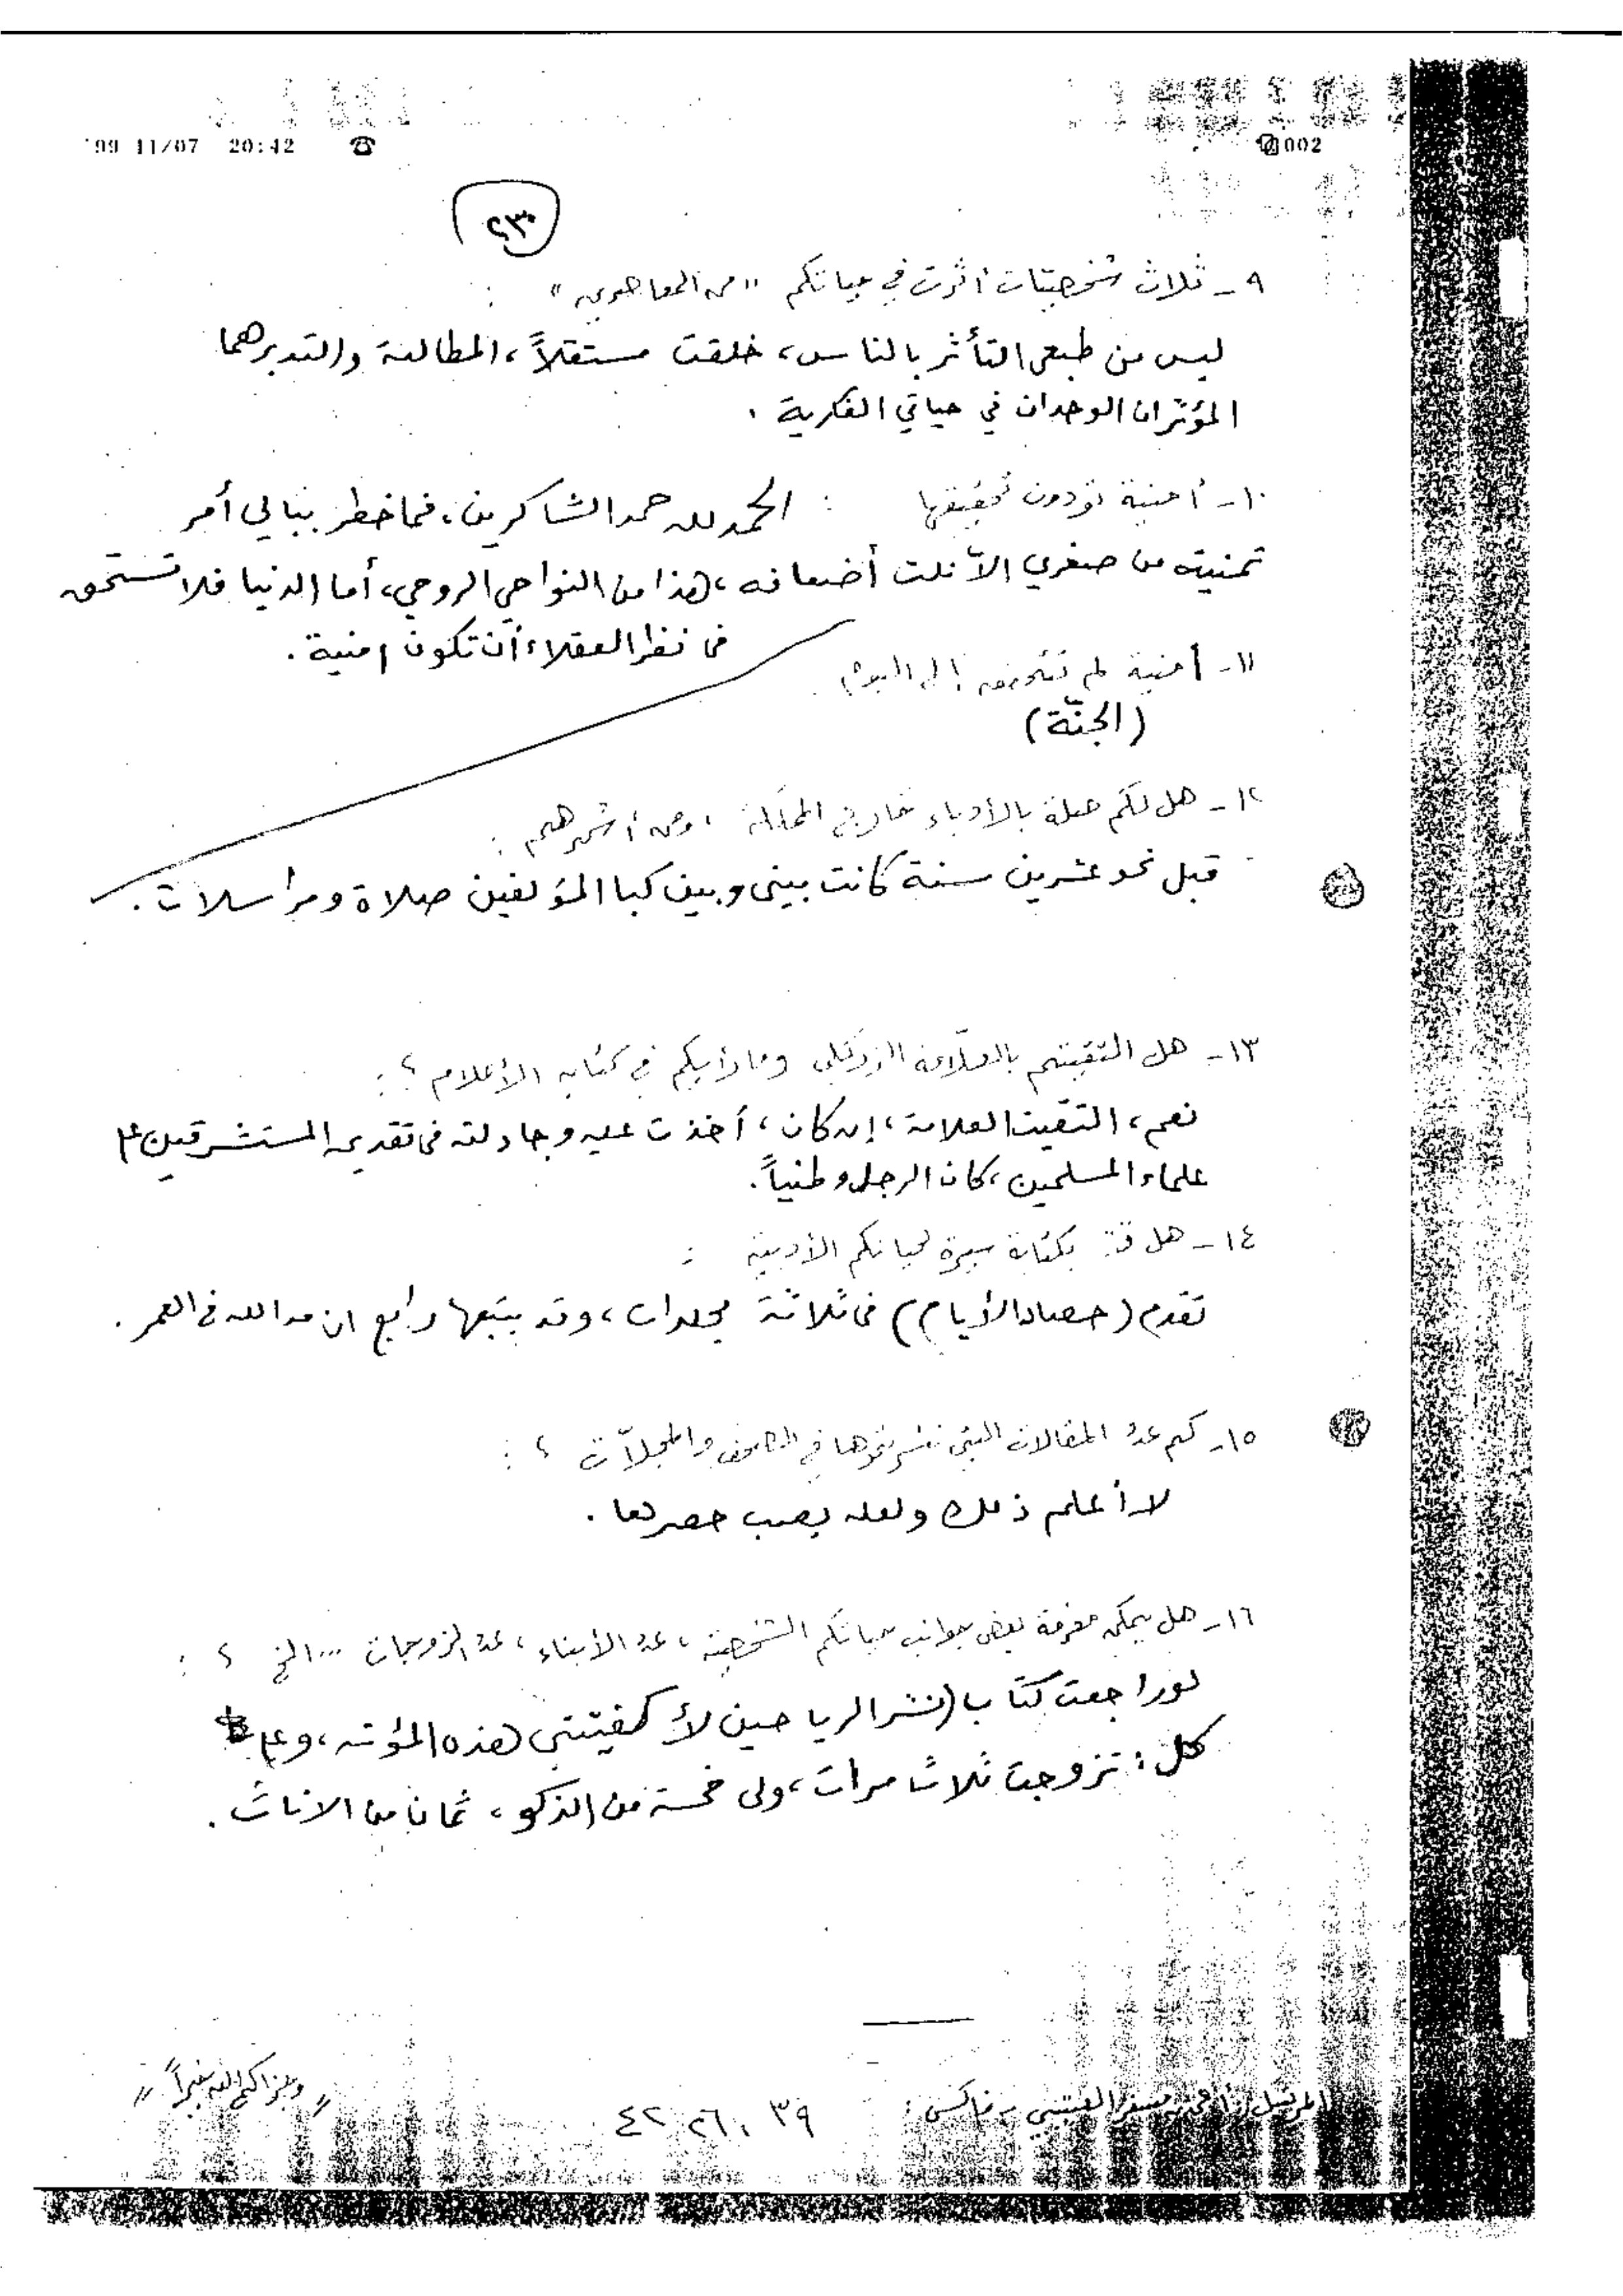 '99 11/07 20:42 ☎ 002
٢٣٠
٩ - ثلاث شخصيّات أثرت في حياتكم "من المعاصرين" :
ليس من طبعي التأثر بالناس، خلقت مستقلاً، المطالعة والتدبر هما
المؤثران الوحدان في حياتي الفكرية .
١٠ - أمنية تودون تحقيقها : الحمد لله حمد الشاكرين، فما خطر ببالي أمر
تمنيته من صغري الا نلت أضعافه، هذا من النواحي الروحي، أما الدنيا فلا تستحق
في نظر العقلاء أن تكون امنية.
١١ - أمنية لم تتحقق إلى اليوم
(الجنّة)
١٢ - هل لكم صلة بالأدباء خارج المملكة ، ومن أشهرهم :
قبل نحو عشرين سنة كانت بيني وبين كبا المؤلفين صلاة ومراسلات .
١٣ - هل التقيتم بالعلّامة الزركلي وما رأيكم في كتابه الأعلام ؟ :
نعم، التقيت العلامة، إن كان، أخذت عليه وجادلته في تقديم المستشرقين على
علماء المسلمين، كان الرجل وطنياً.
١٤ - هل بكتابة سيرة لحياتكم الأدبية :
تقدم (حصاد الأيام) في ثلاثة مجلدات، وقد يتبعها رابع ان مد الله في العمر .
١٥ - كم عدد المقالات التي نشرتموها في الصحف والمجلّات ؟ :
لا أعلم ذلك ولعله يصب حصرها .
١٦ - هل يمكن معرفة بعض جوانب حياتكم الشخصية ، عدد الأبناء ، عدد الزوجات ... الخ ؟ :
لو راجعت كتاب (نشر الرياحين لأكفيتني هذه المؤنة، وعلى
كل: تزوجت ثلاث مرات، ولى خمسة من الذكو، ثمان من الاناث .
" وجزاكم الله خيراً "
المرسل / العتيبي - فاكس : ٤٢٢٦٠٣٩